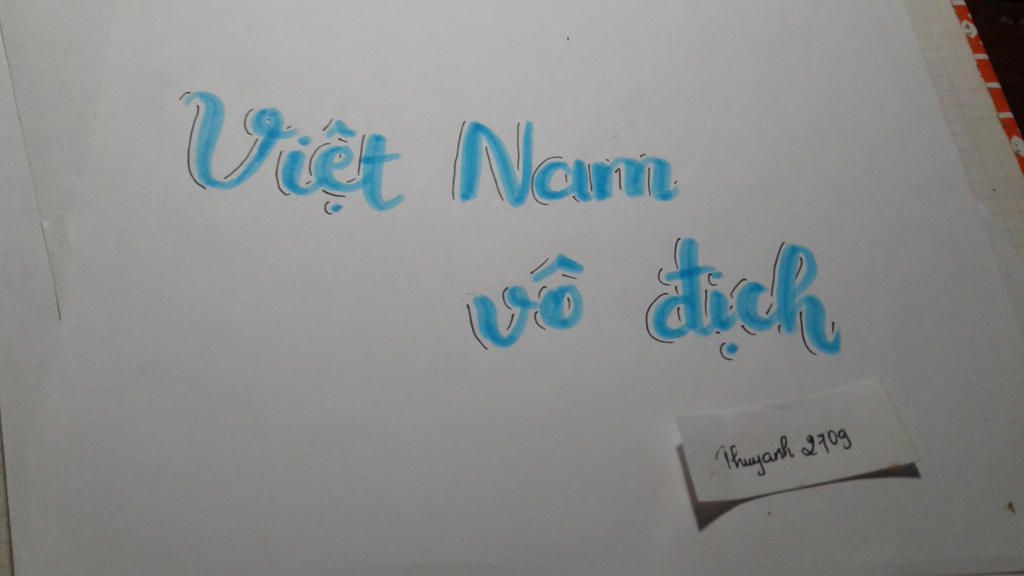 Việt Nam
vô địch
Thuyanh 2709